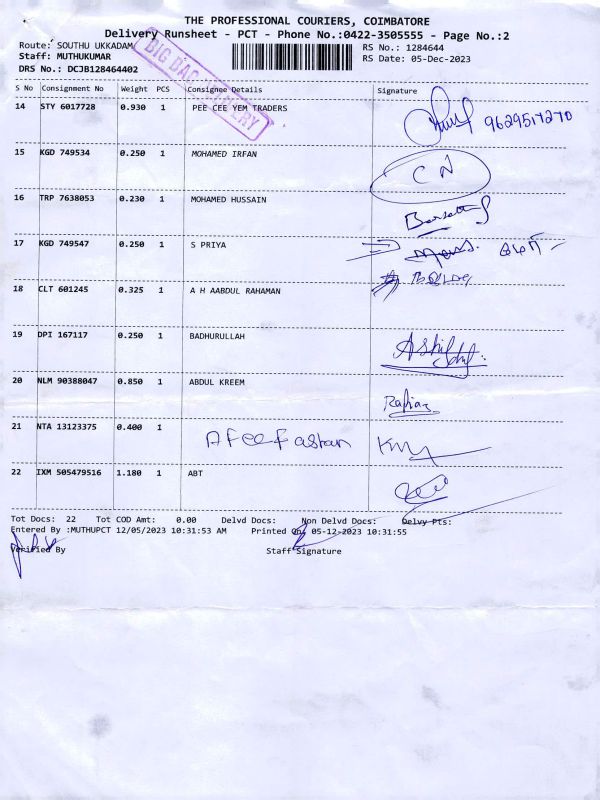 THE PROFESSIONAL COURIERS, COIMBATORE
Delivery Runsheet - PCT - Phone No.:0422-3505555 - Page No.:2
Route: SOUTHU UKKADAM RS No.: 1284644
Staff: MUTHUKUMAR RS Date: 05-Dec-2023
DRS No.: DCJB128464402
BIG BAG DELIVERY
S No Consignment No Weight PCS Consignee Details Signature
14 STY 6017728 0.930 1 PEE CEE YEM TRADERS 9629517270
15 KGD 749534 0.250 1 MOHAMED IRFAN CN
16 TRP 7638053 0.230 1 MOHAMED HUSSAIN
17 KGD 749547 0.250 1 S PRIYA
18 CLT 601245 0.325 1 A H AABDUL RAHAMAN
19 DPI 167117 0.250 1 BADHURULLAH
20 NLM 90388047 0.850 1 ABDUL KREEM
21 NTA 13123375 0.400 1
22 IXM 505479516 1.180 1 ABT
Tot Docs: 22 Tot COD Amt: 0.00 Delvd Docs: Non Delvd Docs: Delvy Pts:
Entered By :MUTHUPCT 12/05/2023 10:31:53 AM Printed On: 05-12-2023 10:31:55
Verified By Staff Signature